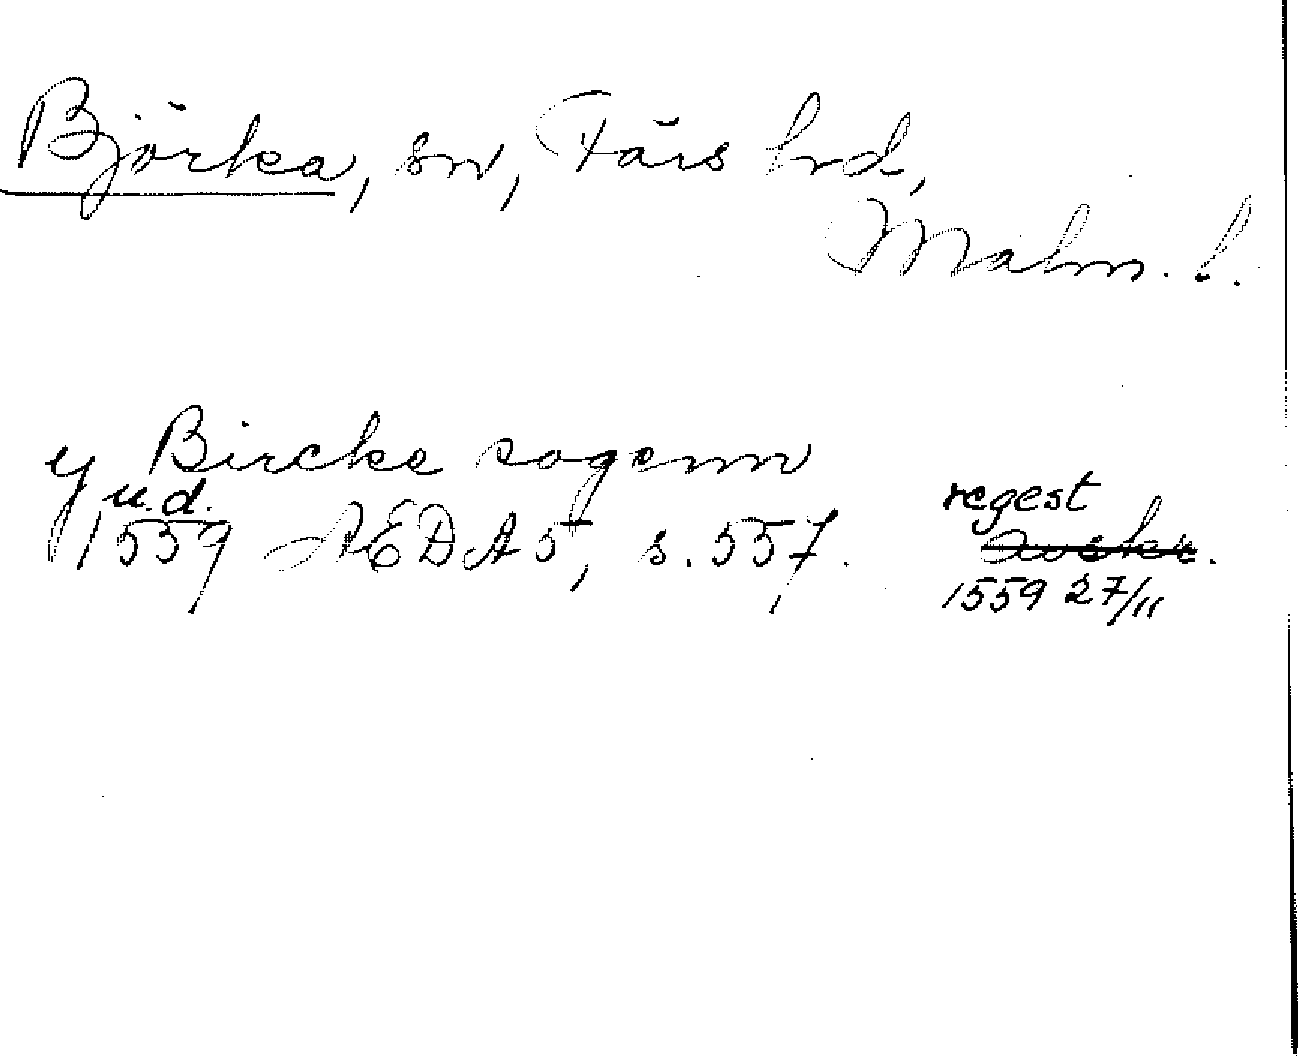 Björka, sn, Färs hrd,
Malm. l.
y Bircke sogenn
u.d.
1559 ÆDA 5, s. 557.
regest
Avskr.
1559 27/11